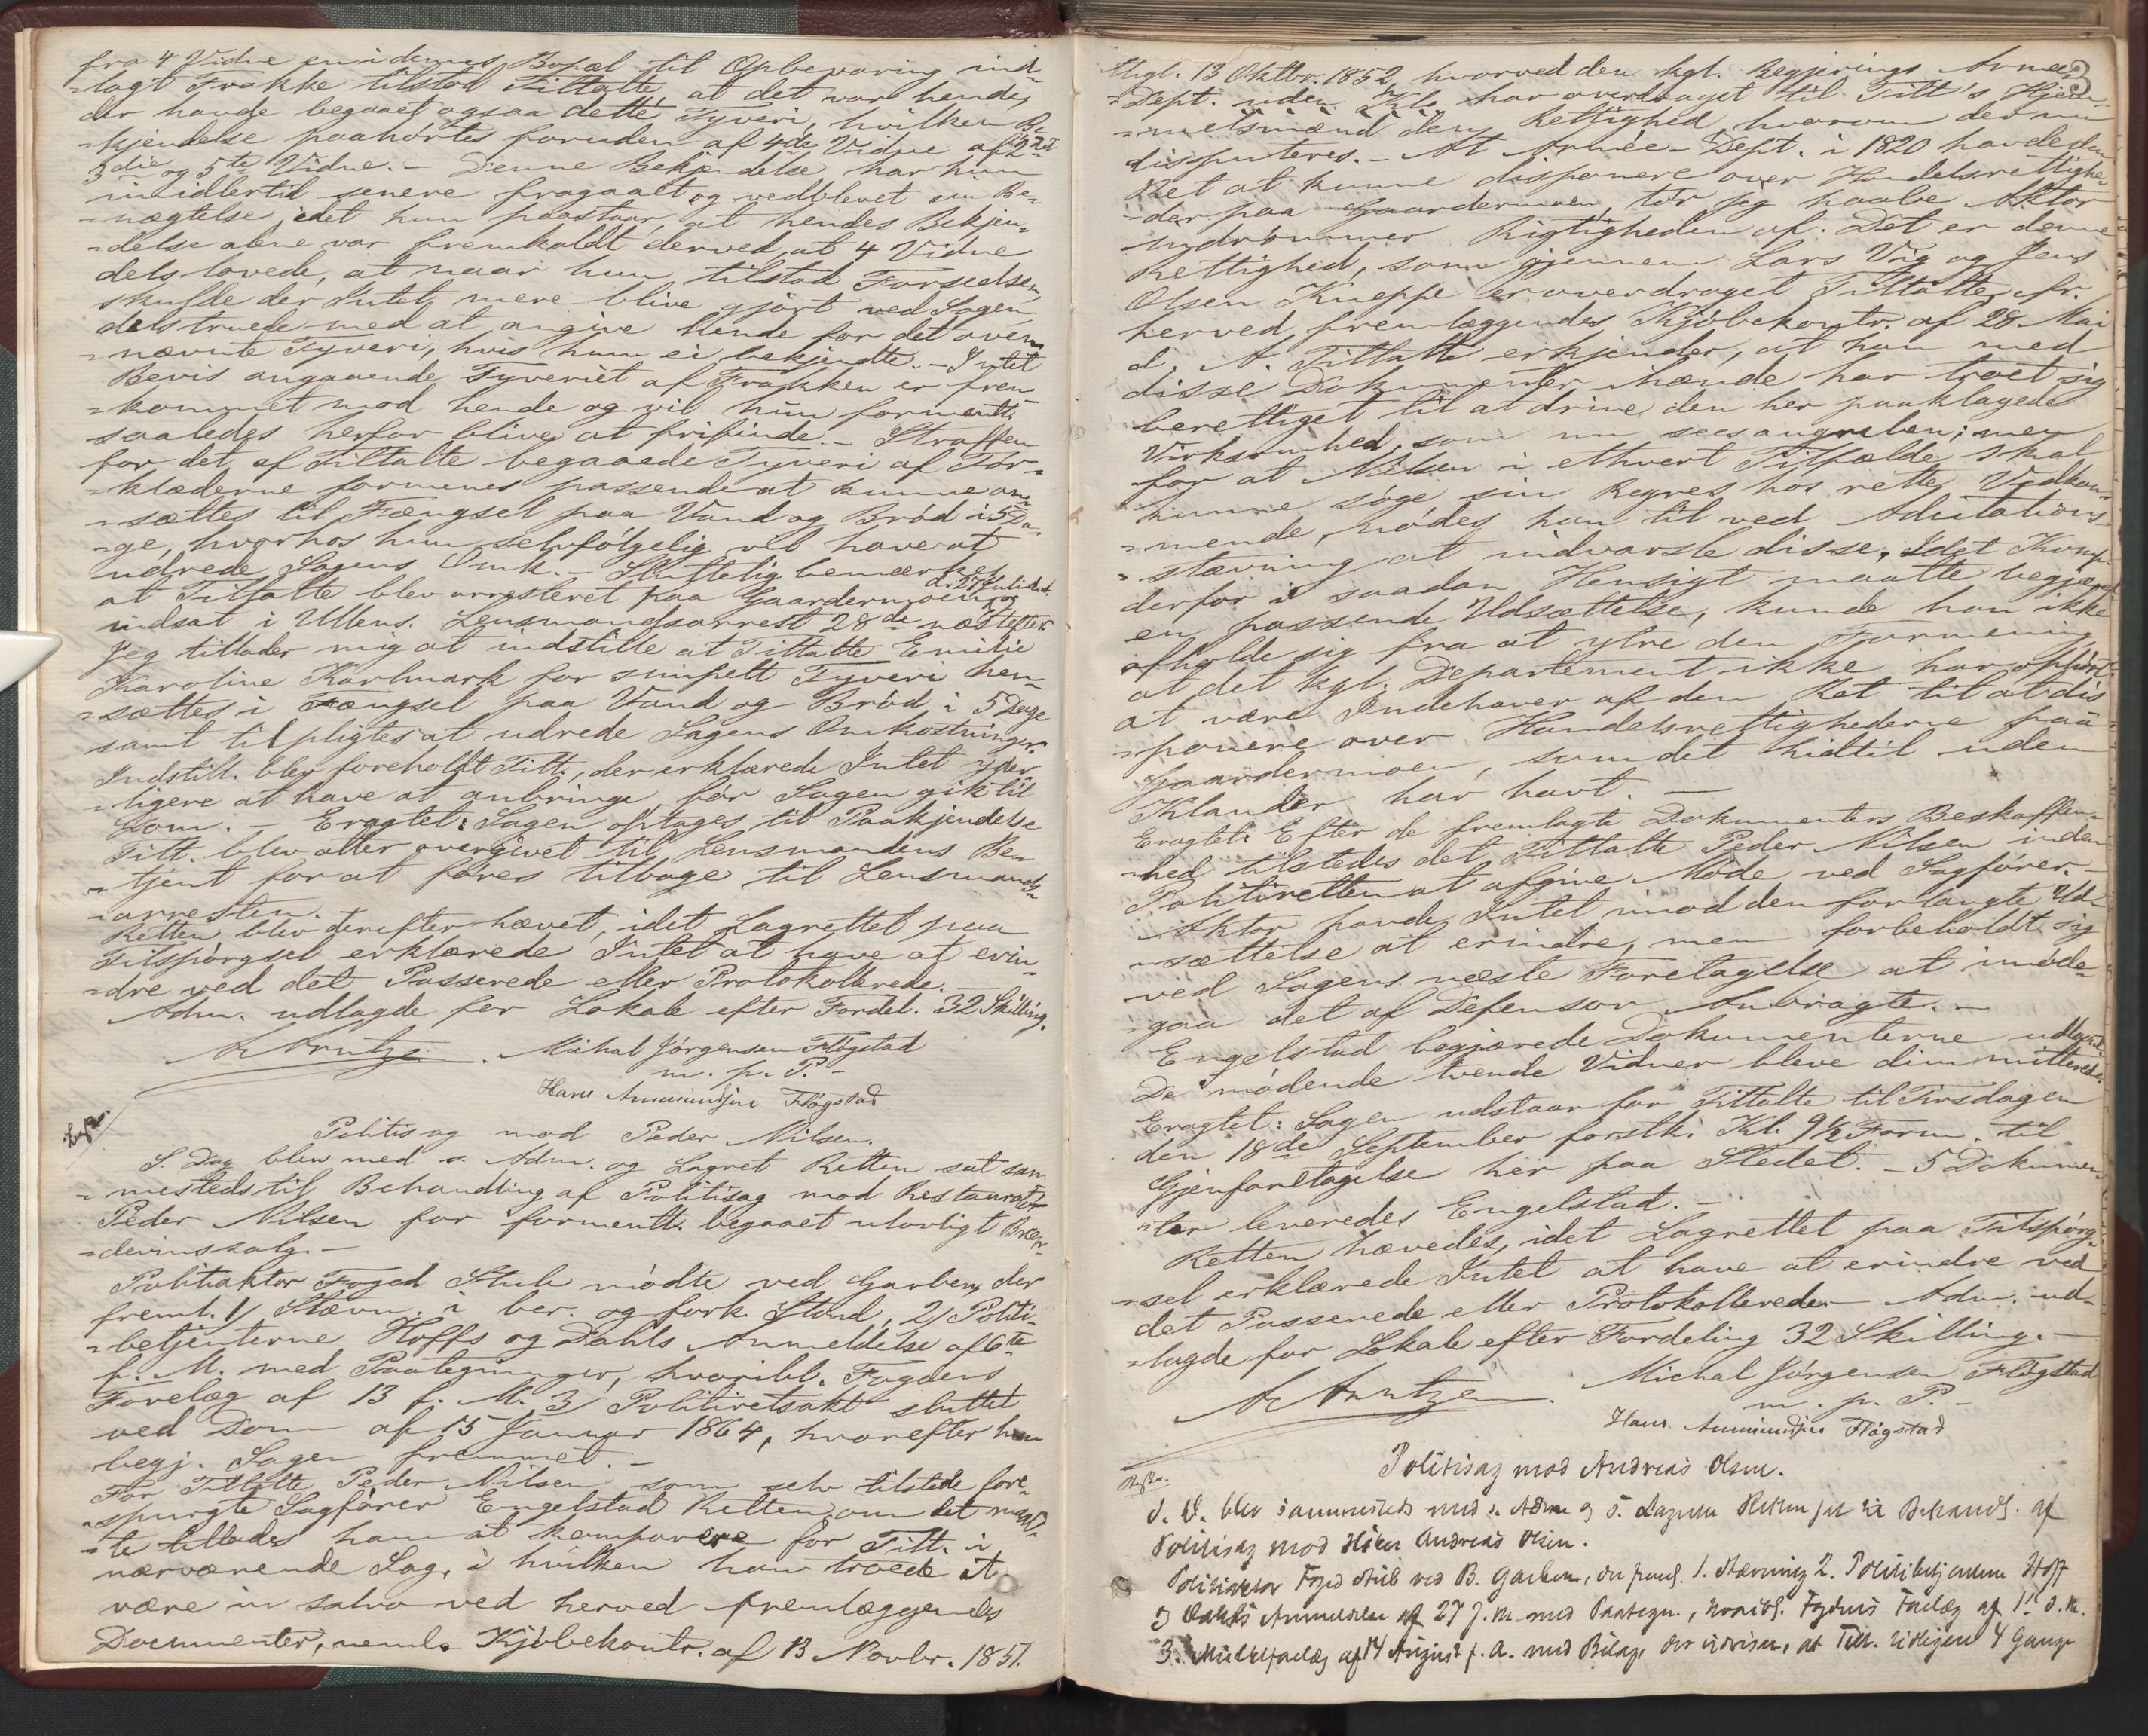 fra 4 Vidne en i dennes Bopæl til Opbevaring ind-
-lagt Frakke tilstod Tiltalte, at det var hende,
der havde begaaet ogsaa dette Tyveri, hvilken Be-
-kjendelse paahørtes foruden af 4de Vidne af 2det
3die og 5te Vidne. - Denne Bekjendelse har hun
imidlertid senere fragaaet og vedblevet sin Be-
-nægtelse idet hun paastaar, at hendes Bekjen-
-delse alene var fremkaldt derved, at 4 Vidne
dels lovede, at naar hun tilstod Forseelsen,
skulde der Intet mere blive gjort ved Sagen,
dels truede med at angive hende for det oven-
-nævnte Tyveri, hvis hun ei bekjendte. - Intet
Bevis angaaende Tyveriet af Frakken er frem-
-kommet mod hende og vil hun formentl.
saaledes herfor blive at frifinde. - Straffen
for det af Tiltalte begaaede Tyveri af Tør-
-klæderne formenes passende at kunne an-
-sættes til Fængsel paa Vand og Brød i 5 Da-
-ge, hvorhos hun selvfølgelig vil have at
udrede Sagens Omk. - Sluttelig bemærkes
at Tiltalte blev arresteret paa Gardermoen d. 27 Juli d. A. og
indsat i Ullens. Lensmandsarrest 28de næstefter.
Jeg tillader mig at indstille at Tiltalte Emilie
Karoline Karlmark for simpelt Tyveri hen-
-sættes i Fængsel paa Vand og Brød i 5 Dage
samt tilpligtes at udrede Sagens Omkostninger.
Indstill. blev foreholdt Tilt., der erklærede Intet yder-
-ligere at have at anbringe før Sagen gik til
Dom. - Eragtet: Sagen optages til Paakjendelse
Tilt. blev atter overgivet til Lensmandens Be-
-tjent for at føres tilbage til Lensmands-
-arresten.
Retten blev derefter hævet, idet Lagrettet paa
Tilspørgsel erklærede Intet at have at erin-
-dre ved det Passerede eller Protokollerede. -
Adm. udlagde for Lokale efter Fordel. 32 Skilling.
A Arntzen. Michal Jörgensen Flögstad
m. p. P. -
Hans Ammundsen Flögstad
Politisag mod Peder Nilsen.
S. Dag blev med s. Adm. og Lagret Retten sat sam-
-mesteds til Behandling af Politisag mod Restauratør
Peder Nilsen for formentl. begaaet ulovligt Bræn-
-devinssalg. -
Politiaktor Foged Stub mødte ved Garben, der
freml. 1/ Stævn. i ber. og fork. Stand, 2/ Politi-
-betjenterne Hoffs og Dahls Anmeldelse af 6te
f. M. med Paategninger, hvoribl. Fogdens
Forelæg af 13 f. M. 3/ Politiretsakt sluttet
ved Dom af 15 Januar 1864, hvorefter han
begj. Sagen fremmet. -
For Tiltalte Peder Nilsen, som selv tilstede fore-
-spurgte Sagfører Engelstad Retten, om det maat-
-te tillades ham at komparere for Tilt. i
nærværende Sag, i hvilken han troede at
være in salvo ved herved fremlæggendes
Documenter, neml. Kjøbekontr. af 13 Novbr. 1851.
3
thgl. 13 Oktbr. 1852, hvorved den kgl. Regjerings Armee-
-Dept. uden Kl. har overdraget til Tilt's Hjem-
-melsmænd den Rettighed, hvorom der nu
disputeres. - At Armée-Dept. i 1820 havde den
Ret at kunne disponere over Handelsrettighe-
-der paa Gaardermoen, tør jeg haabe Aktor
indrømmer Rigtigheden af. Det er denne
Rettighed, som gjennem Lars Vig og Jens
Olsen Kneppe er overdraget Tiltalte, cfr.
herved fremlæggendes Kjøbekontr. af 28 Mai
d. A. Tiltalte erkjender, at han med
disse Dokumenter ihænde har troet sig
berettiget til at drive den her paaklagede
Virksomhed, som nu sees angreben; men
for at Nilsen i ethvert Tilfælde skal
kunne søge sin Regres hos rette Vedkom-
-mende, nødes han til ved Adcitations-
-stævning at indvarsle disse. Idet Komp.
derfor i saadan Hensigt maatte begjære
en passende Udsættelse, kunde han ikke
afholde sig fra at ytre den Formening
at det kgl. Departement ikke har ophørt
at være Indehaver af den Ret til at dis-
-ponere over Handelsrettighederne paa
Gaardermoen, som det hidtil uden
Klander har havt. -
Eragtet: Efter de fremlagte Dokumenters Beskaffen-
-hed tilstedes det Tiltalte Peder Nilsen inden
Politiretten at afgive Møde ved Sagfører. -
Aktor havde Intet imod den forlangte Ud-
-sættelse at erindre, men forbeholdt sig
ved Sagens næste Foretagelse at imøde-
-gaa det af Defensor Anbragte. -
Engelstad begjærede Dokumenterne udlaant.
De mødende tvende Vidner bleve dimitterede.
Eragtet: Sagen udstaar for Tiltalte til Tirsdagen
den 18de September førstk. Kl. 9½ Form. til
Gjenforetagelse her paa Stedet. - 5 Dokumen-
-ter leveredes Engelstad. -
Retten hævedes, idet Lagrettet paa Tilspørg-
-sel erklærede Intet at have at erindre ved
det Passerede eller Protokollerede. - Adm. ud-
-lagde for Lokale efter Fordeling 32 Skilling. -
A Arntzen. Michal Jörgensen Flögstad
m. p. P. -
Hans Ammundsen Flögstad
Politisag mod Andreas Olsen.
S. D. blev sammesteds med s. Adm og s. Lagrette Retten sat til Behandl. af
Politisag mod Andreas Olsen.
Politiaktor Foged Stub ved B. Garben, der freml. 1. Stævning 2. Politibetjentene Hoff
og Dahls Anmeldelse af 27 f. M. med Paategn., hvoribl. Fogdens Forelæg af 1ste d. M.
3. Mulktforelæg af 14 August f. A. med Bilag, der udviser, at Tilt. tidligere 4 Gange